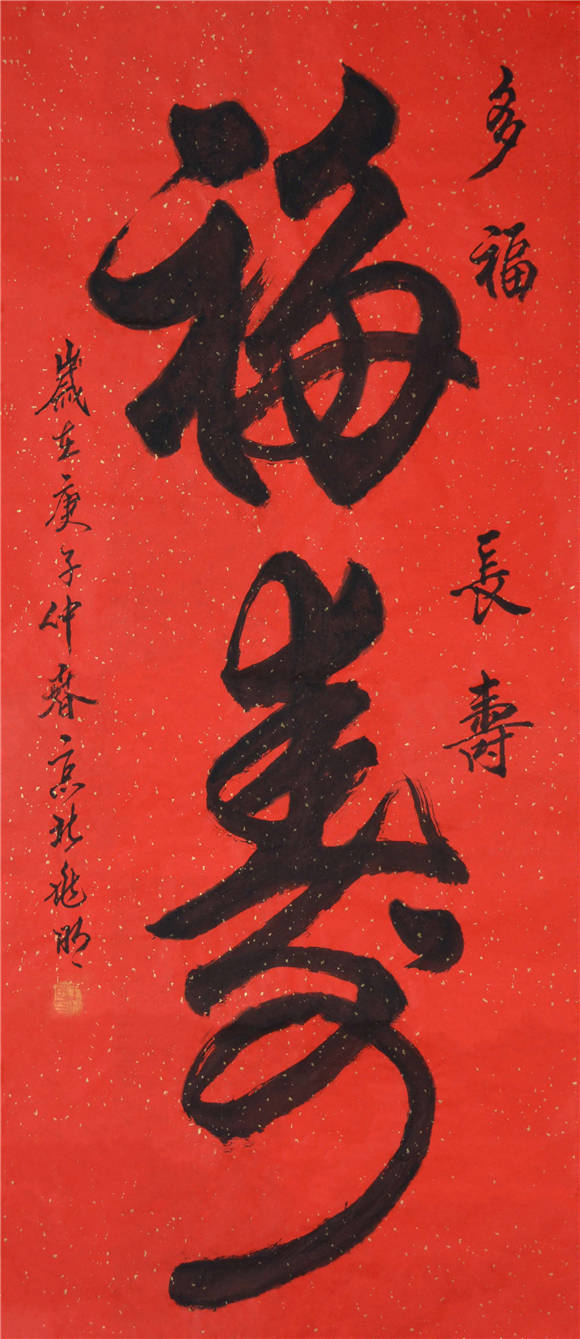 多福 長壽
福壽
歲在庚子仲春京北兆明